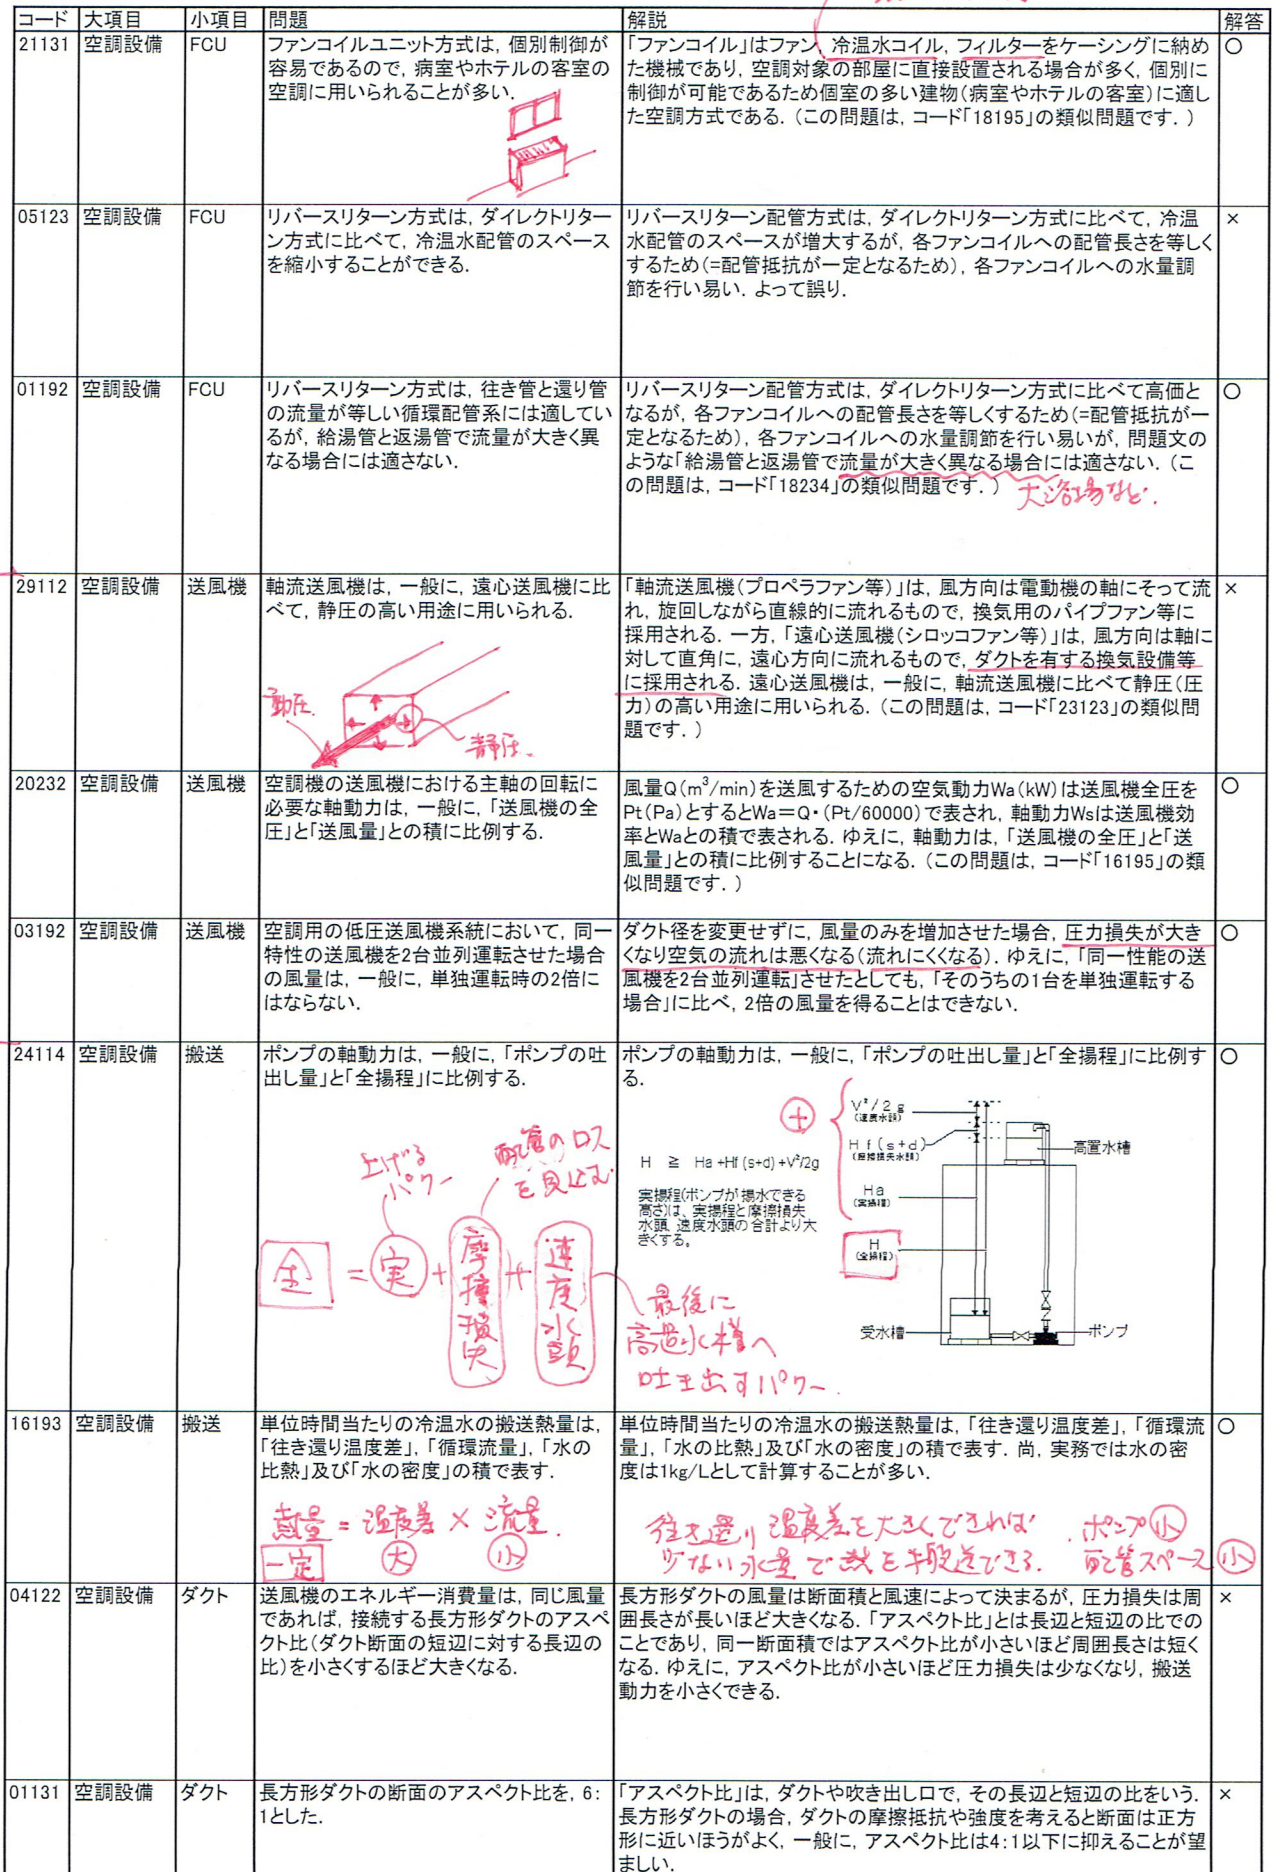 コード 大項目 小項目 問題 解説 解答
21131 空調設備 FCU
ファンコイルユニット方式は, 個別制御が
容易であるので, 病室やホテルの客室の
空調に用いられることが多い.
「ファンコイル」はファン, 冷温水コイル, フィルターをケーシングに納め
た機械であり, 空調対象の部屋に直接設置される場合が多く, 個別に
制御が可能であるため個室の多い建物(病室やホテルの客室)に適し
た空調方式である. (この問題は, コード「18195」の類似問題です. )
○
05123 空調設備 FCU
リバースリターン方式は, ダイレクトリター
ン方式に比べて, 冷温水配管のスペース
を縮小することができる.
リバースリターン配管方式は, ダイレクトリターン方式に比べて, 冷温
水配管のスペースが増大するが, 各ファンコイルへの配管長さを等しく
するため(=配管抵抗が一定となるため), 各ファンコイルへの水量調
節を行い易い. よって誤り.
×
01192 空調設備 FCU
リバースリターン方式は, 往き管と還り管
の流量が等しい循環配管系には適してい
るが, 給湯管と返湯管で流量が大きく異
なる場合には適さない.
リバースリターン配管方式は, ダイレクトリターン方式に比べて高価と
なるが, 各ファンコイルへの配管長さを等しくするため(=配管抵抗が一
定となるため), 各ファンコイルへの水量調節を行い易いが, 問題文の
ような「給湯管と返湯管で流量が大きく異なる場合には適さない. (こ
の問題は, コード「18234」の類似問題です. )
大浴場など.
○
29112 空調設備 送風機
軸流送風機は, 一般に, 遠心送風機に比
べて, 静圧の高い用途に用いられる.
動圧.
静圧.
「軸流送風機(プロペラファン等)」は, 風方向は電動機の軸にそって流
れ, 旋回しながら直線的に流れるもので, 換気用のパイプファン等に
採用される. 一方, 「遠心送風機(シロッコファン等)」は, 風方向は軸に
対して直角に, 遠心方向に流れるもので, ダクトを有する換気設備等
に採用される. 遠心送風機は, 一般に, 軸流送風機に比べて静圧(圧
力)の高い用途に用いられる. (この問題は, コード「23123」の類似問
題です. )
×
20232 空調設備 送風機
空調機の送風機における主軸の回転に
必要な軸動力は, 一般に, 「送風機の全
圧」と「送風量」との積に比例する.
風量Q(m³/min)を送風するための空気動力Wa(kW)は送風機全圧を
Pt(Pa)とするとWa=Q・(Pt/60000)で表され, 軸動力Wsは送風機効
率とWaとの積で表される. ゆえに, 軸動力は, 「送風機の全圧」と「送
風量」との積に比例することになる. (この問題は, コード「16195」の類
似問題です. )
○
03192 空調設備 送風機
空調用の低圧送風機系統において, 同一
特性の送風機を2台並列運転させた場合
の風量は, 一般に, 単独運転時の2倍に
はならない.
ダクト径を変更せずに, 風量のみを増加させた場合, 圧力損失が大き
くなり空気の流れは悪くなる(流れにくくなる). ゆえに, 「同一性能の送
風機を2台並列運転」させたとしても, 「そのうちの1台を単独運転する
場合」に比べ, 2倍の風量を得ることはできない.
○
24114 空調設備 搬送
ポンプの軸動力は, 一般に, 「ポンプの吐
出し量」と「全揚程」に比例する.
上げる
パワー
配管のロス
を見込む
全 = 実 + 摩擦損失 + 速度水頭
ポンプの軸動力は, 一般に, 「ポンプの吐出し量」と「全揚程」に比例す
る.
H ≧ Ha +Hf (s+d) +V²/2g
実揚程(ポンプが揚水できる
高さ)は、実揚程と摩擦損失
水頭、速度水頭の合計より大
きくする。
+
V²/2g
(速度水頭)
Hf(s+d)
(摩擦損失水頭)
Ha
(実揚程)
H
(全揚程)
高置水槽
受水槽
ポンプ
最後に
高置水槽へ
吐き出すパワー.
○
16193 空調設備 搬送
単位時間当たりの冷温水の搬送熱量は,
「往き還り温度差」, 「循環流量」, 「水の
比熱」及び「水の密度」の積で表す.
熱量 = 温度差 × 流量.
一定 大 小
単位時間当たりの冷温水の搬送熱量は, 「往き還り温度差」, 「循環流
量」, 「水の比熱」及び「水の密度」の積で表す. 尚, 実務では水の密
度は1kg/Lとして計算することが多い.
往き還り温度差を大きくできれば
少ない水量で熱を搬送できる.
ポンプ小
配管スペース小
○
04122 空調設備 ダクト
送風機のエネルギー消費量は, 同じ風量
であれば, 接続する長方形ダクトのアスペ
クト比(ダクト断面の短辺に対する長辺の
比)を小さくするほど大きくなる.
長方形ダクトの風量は断面積と風速によって決まるが, 圧力損失は周
囲長さが長いほど大きくなる. 「アスペクト比」とは長辺と短辺の比での
ことであり, 同一断面積ではアスペクト比が小さいほど周囲長さは短く
なる. ゆえに, アスペクト比が小さいほど圧力損失は少なくなり, 搬送
動力を小さくできる.
×
01131 空調設備 ダクト
長方形ダクトの断面のアスペクト比を, 6:
1とした.
「アスペクト比」は, ダクトや吹き出し口で, その長辺と短辺の比をいう.
長方形ダクトの場合, ダクトの摩擦抵抗や強度を考えると断面は正方
形に近いほうがよく, 一般に, アスペクト比は4:1以下に抑えることが望
ましい.
×